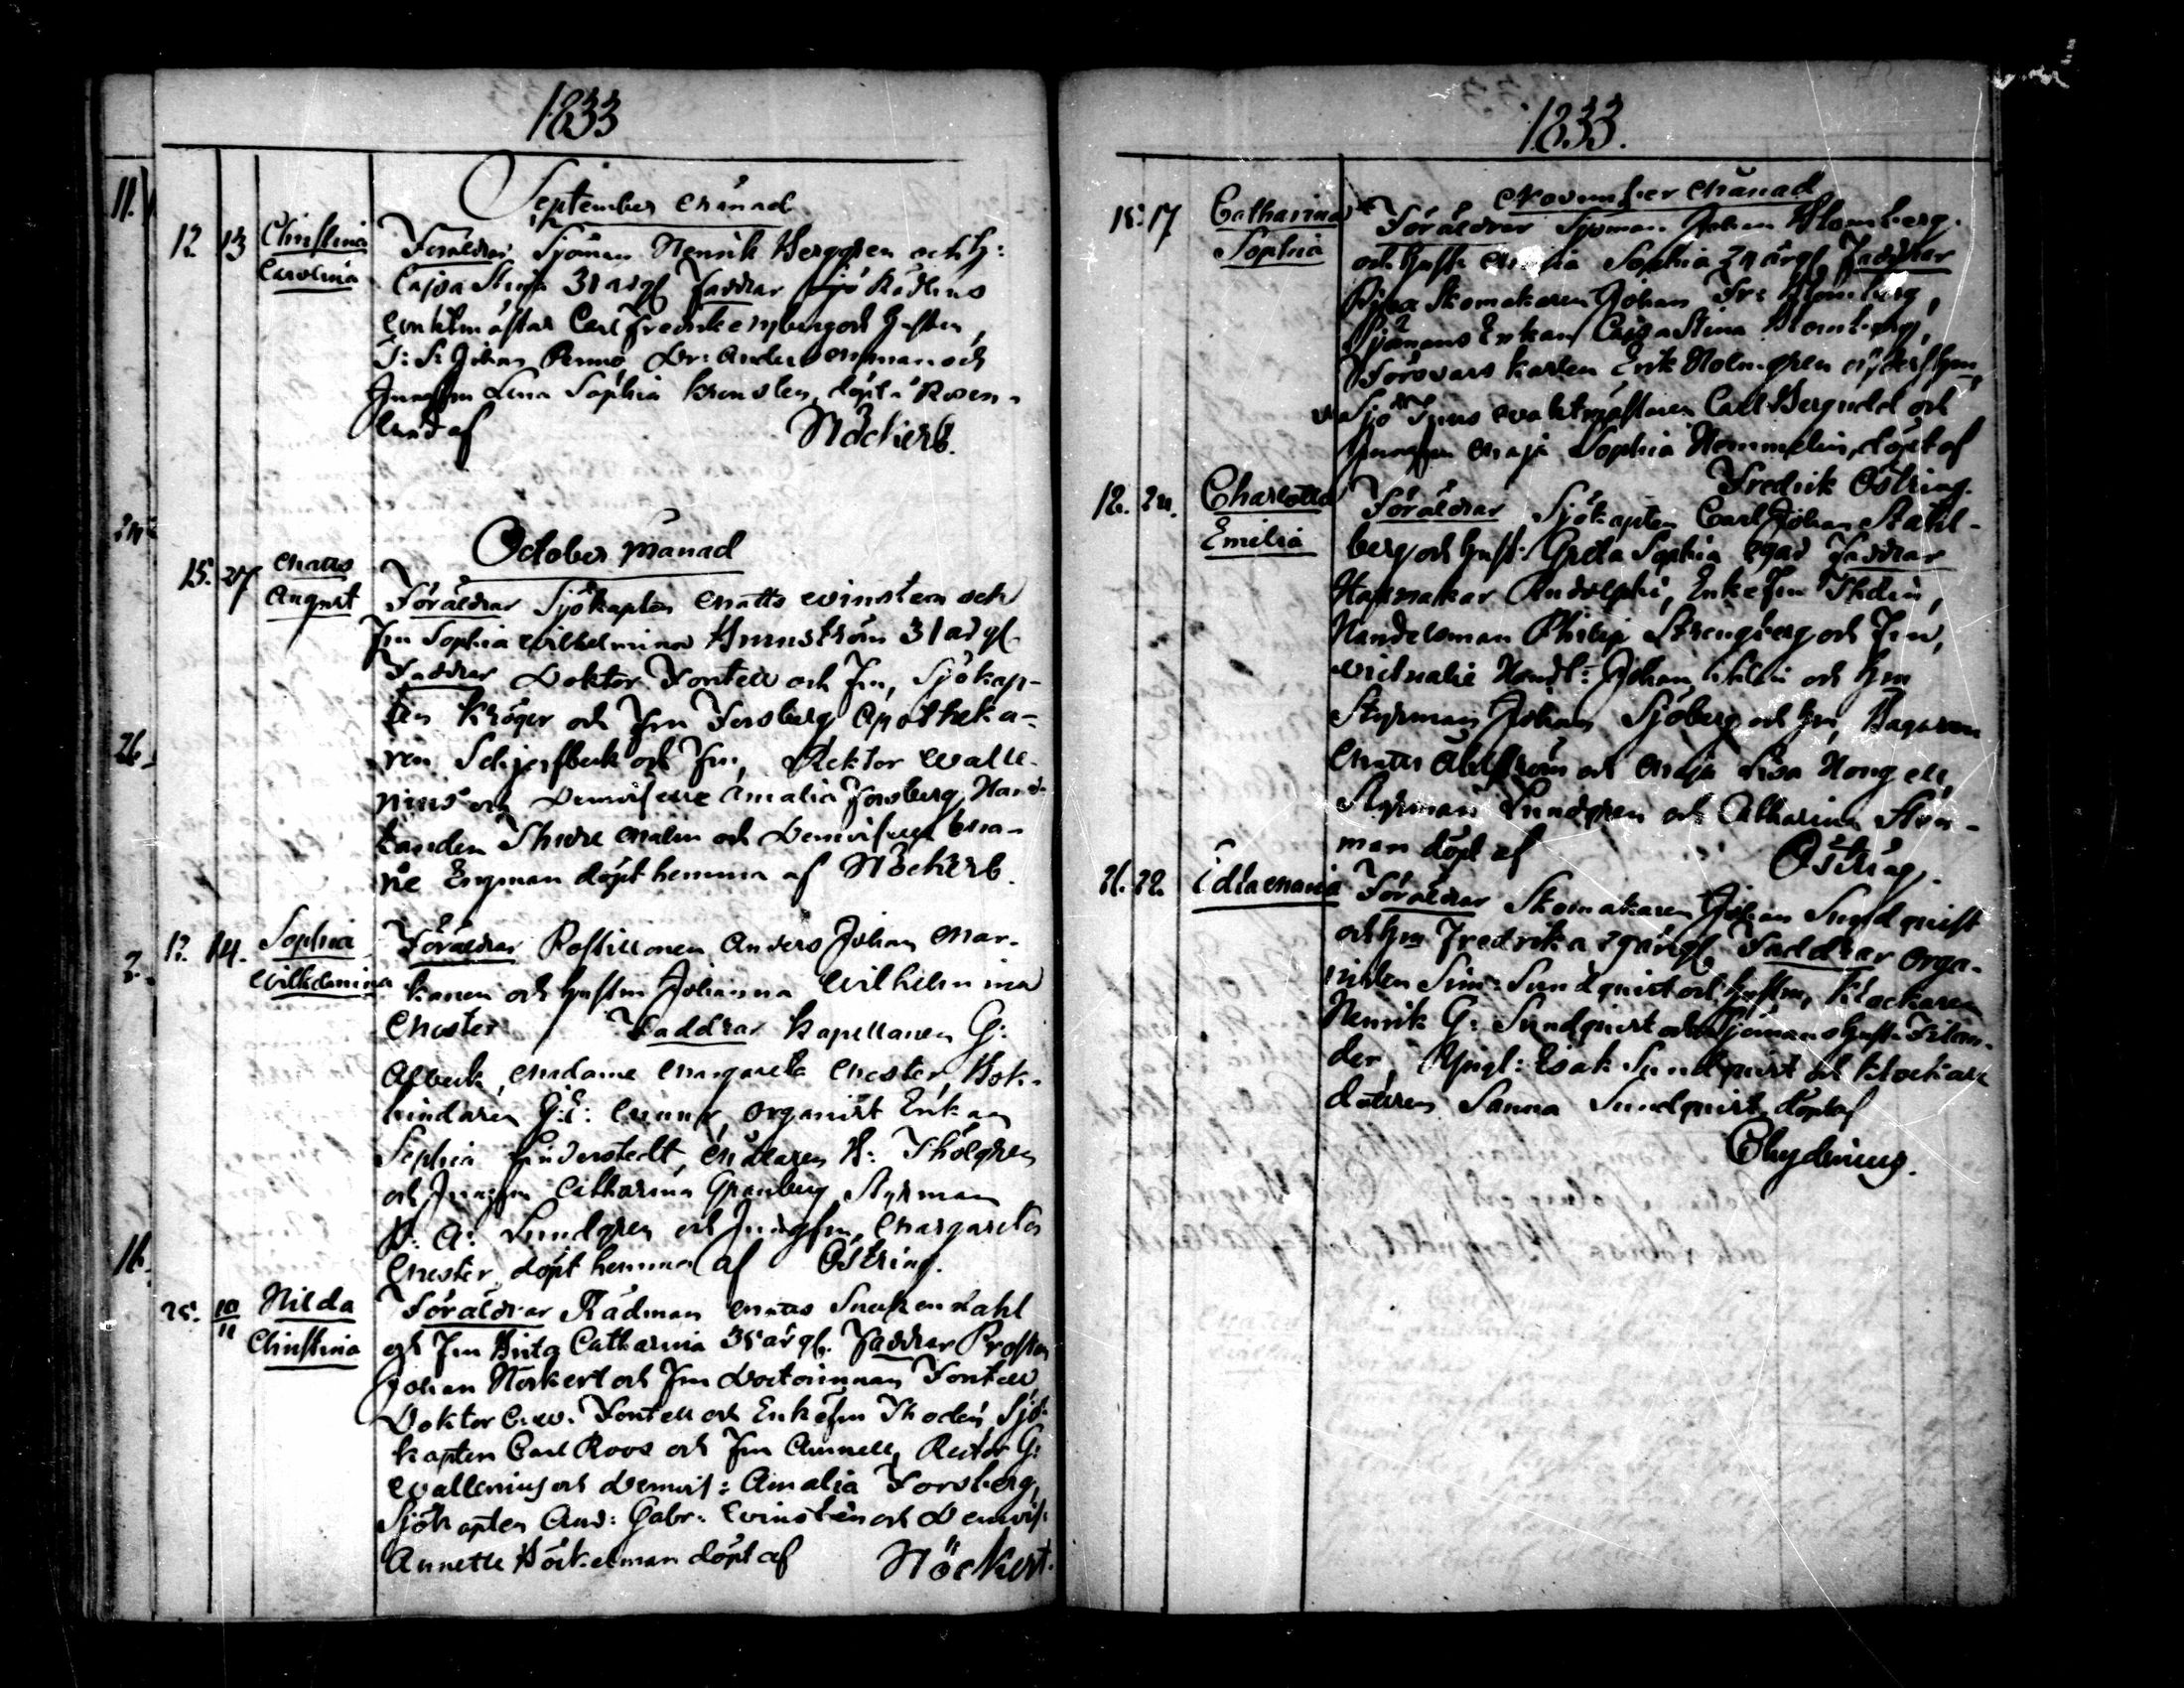 1833
September Månad
12 13 Christina Föräldrar Sjöman Henrik Berggren och h:
Carolina Cajsa Stina 31 årgl Faddrar Sjö Tullens
Vaktmästar Carl Fredrik Nyberg och Hustru,
Johan Dr: Anders och
Jungfru Lena Sophia döpt i Rosen-
lund af Nöckert.
October Månad
15. 27 Matts Föräldrar Sjökapten Matts Winsten och
August Fru Sophia Wilhelmina Brunström 31 årgl
Faddrar Doktor Fontell och Fru, Sjökap-
ten Kröger och Fru Forsberg Apotheka-
ren Schjerfbeck och Fru, Rektor Walle-
nius och Demoiselle Amalia Forsberg, Hand-
landen Thure Malm och Demoiselle
Engman döpt hemma af Nöckert.
12. 14. Sophia Föräldrar Postillonen Anders Johan Mar-
Wilhelmina kanen och hustru Johanna Wilhelmina
Mester Faddrar Kapellanen G:
Alfbeck, Madame Margareta Mester, Bok-
bindaren G: E: organist Enkan
Sophia Linderstedt, Målaren H: Thölgren
och Jungfru Catharina Granberg Styrman
P: A: Lundgren och Jungfru Margareta
Mester döpt hemma af Östring.
25. 10/11 Hilda Föräldrar Rådman Matts Snickendahl
Christina och Fru Brita Catharina 35 årgl. Faddrar Prosten
Johan Nöckert och Fru Doctorinnan Fontell
Doktor C. W. Fontell och Enkefru Thodén Sjö-
kapten Carl Roos och Fru Rector G:
Wallenius och Demois: Amalia Forsberg,
Sjökapten And: Gabr: Winstén och Demois:
Annette Böckelman döpt af Nöckert.
11.
24.
26.
2.
16.
1833.
November Månad
15. 17 Catharina Föräldrar Sjöman Johan Blomberg
Sophia och hust. Maria Sophia 24 årgl, Faddrar
Skomakaren Johan Fr: Blomberg,
Sjömans Enkan Cajsa Stina Blomberg,
Försvars karlen Erik Holmgren
Sjö Tulls Waktmästaren Carl Bergudd och
Jungfru Maja Sophia Hemmelin, döpt af
Fredrik Östring.
12. 24. Charlotta Föräldrar Sjökapten Carl Johan Stahl-
Emilia berg och hust: Greta Sophia Faddrar
Hattmakar Rudolphi, Enkefru Thdén,
Handelsman Philip Strengberg och Fru,
Victualie Handl: Johan och hru
Styrman Johan Sjöberg och hru, Bagaren
Matts Ahlström och Maja Lisa Hongell,
Styrman Lundgren och Catharina
man döpt af Östring.
21. 22. Edla Maria Föräldrar Skomakaren Johan Sundquist
och hru Fredrika årgl. Faddrar Orga-
nisten Sim: Sundquist och hustru, Klockaren
Henrik G: Sundquist och Sjömans hust. Filan-
der, Yngl: Isak Sundquist och Klockare
dottren Sanna Sundquist, döpt af
Chydenius.